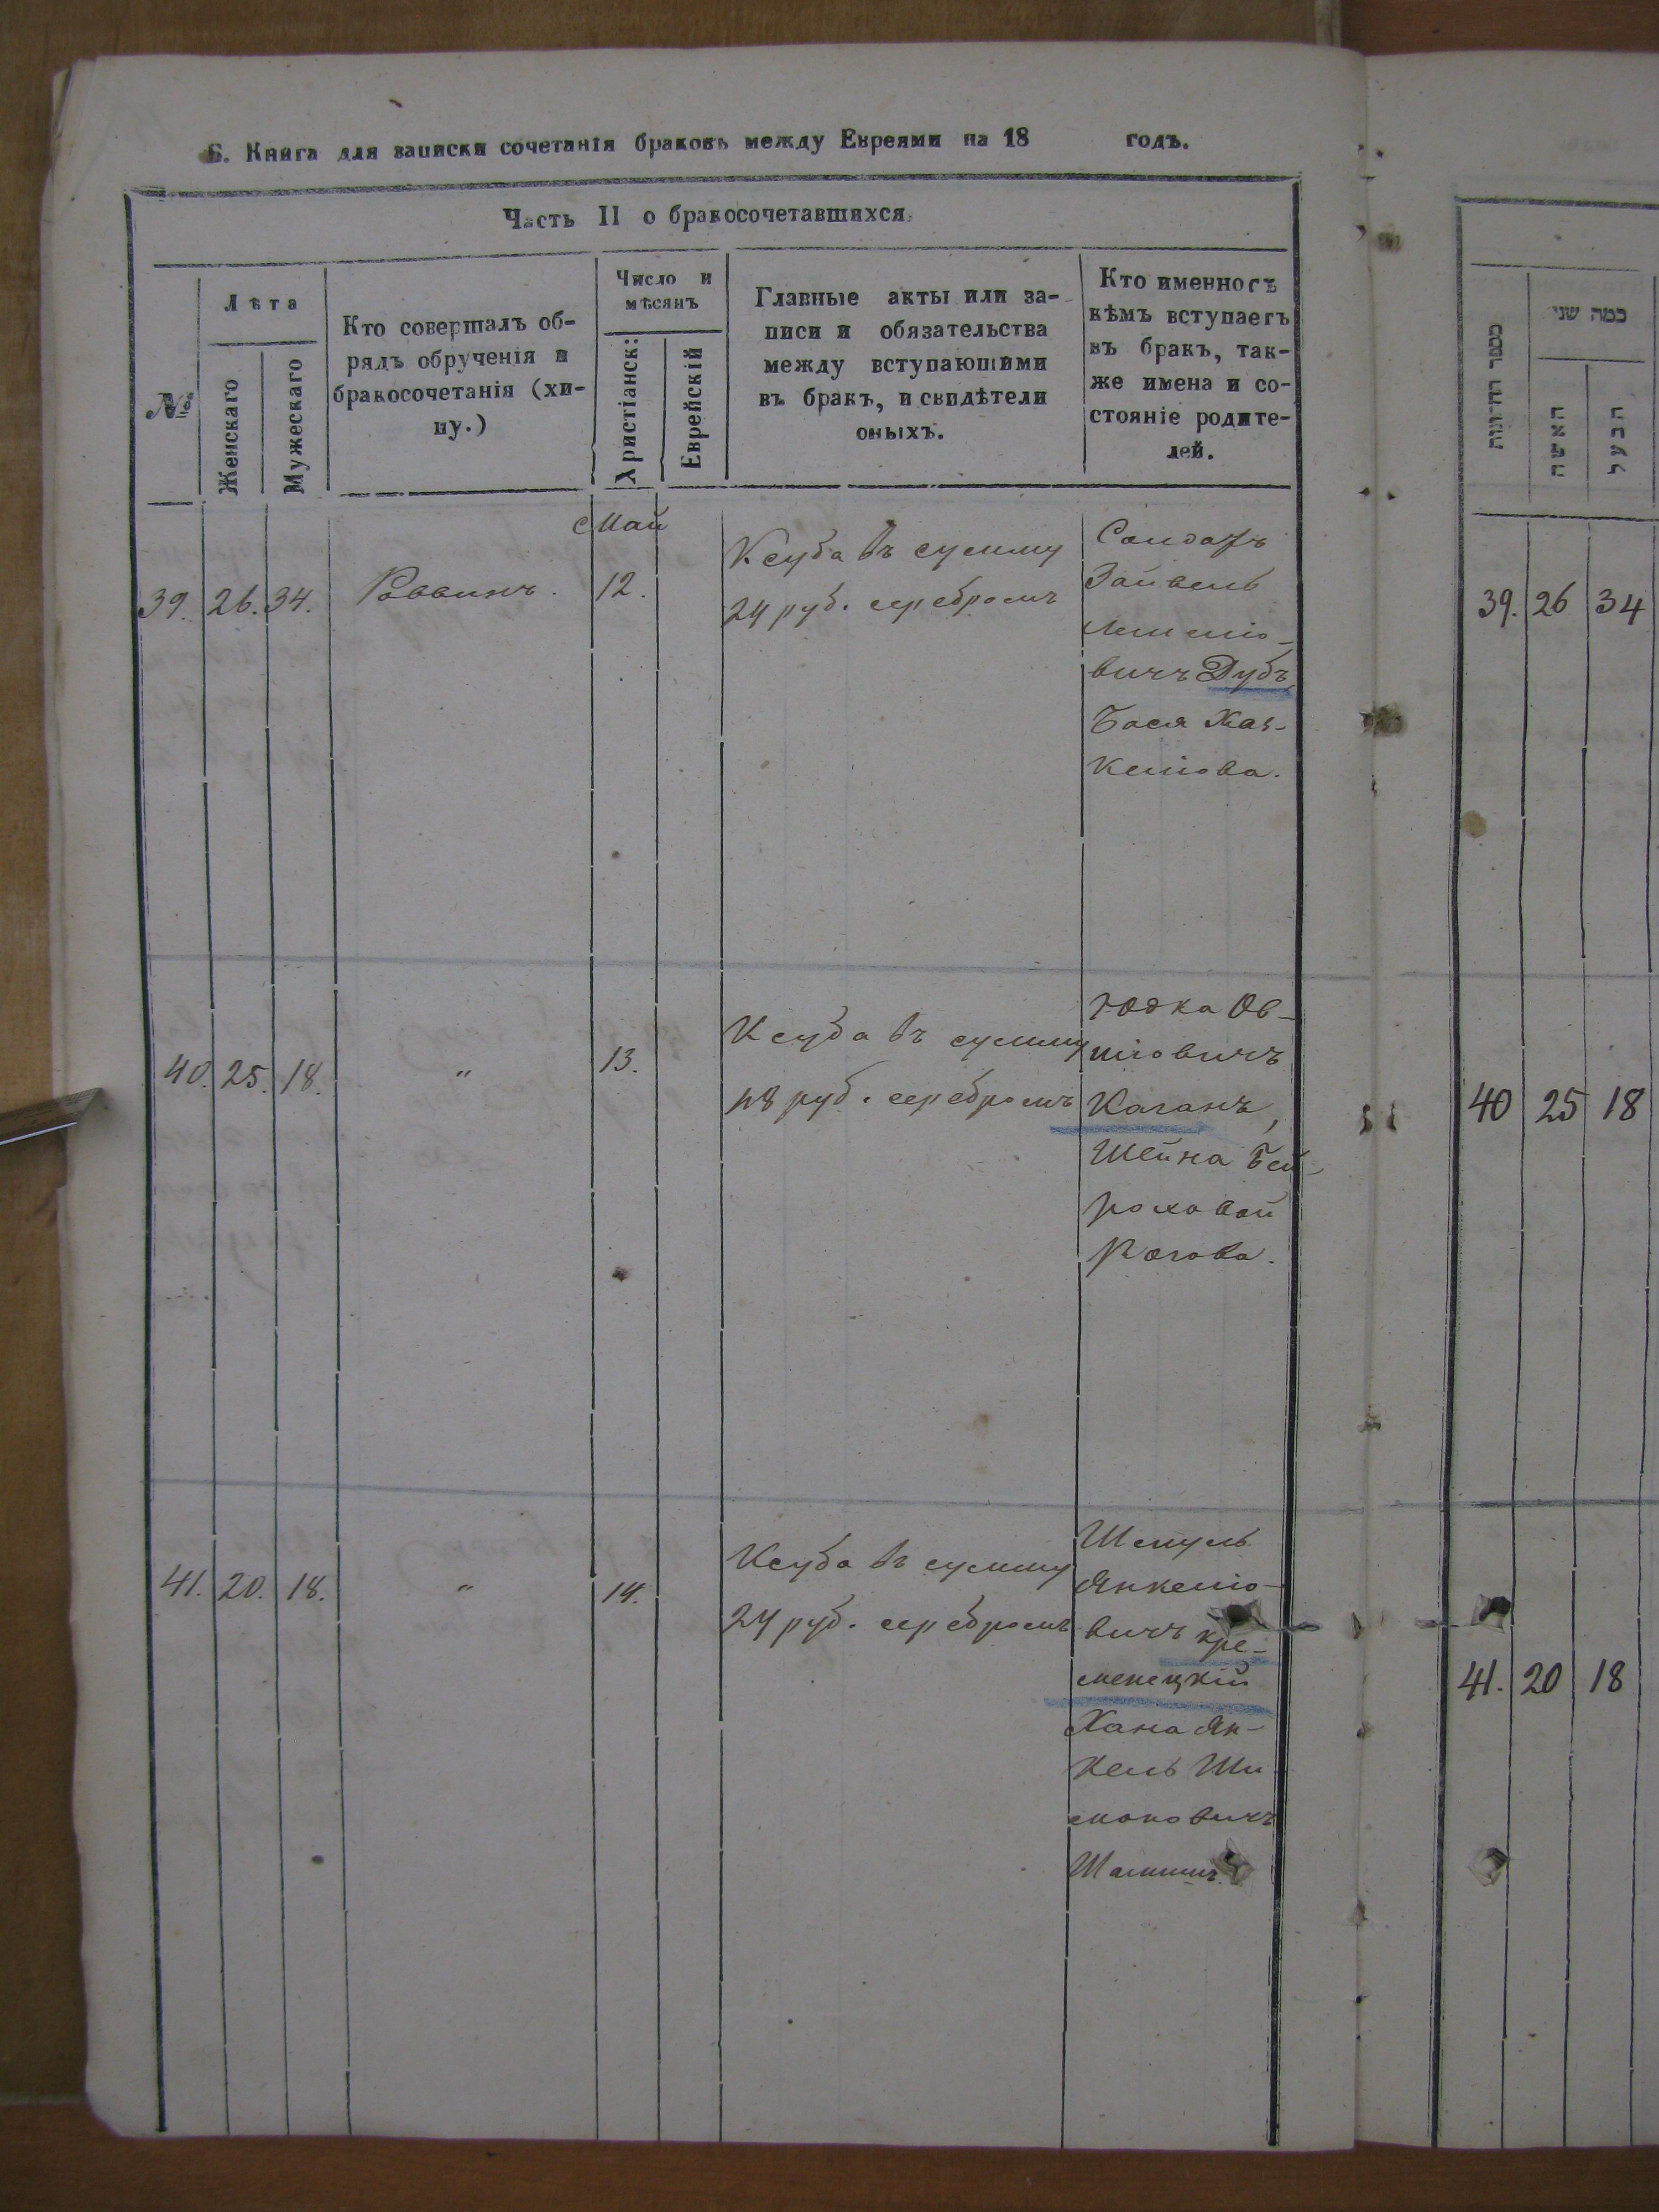 Б. Книга для записки сочетанія браковъ между Евреями на 18 годъ.
Часть II о бракосочетавшихся.
№
Лѣта
Женскаго
Мужескаго
Кто совершалъ об-
рядъ обрученія и
бракосочетанія (хи-
пу.)
Число и
мѣсяцъ
Христіанск:
Еврейскій
Главные акты или за-
писи и обязательства
между вступающими
въ бракъ, и свидѣтели
оныхъ.
Кто именно съ
кѣмъ вступаетъ
въ бракъ, так-
же имена и со-
стояніе родите-
лей.
Май
39. 26. 34. Раввинъ. 12.
Ксуба въ сумму
24 руб. серебромъ
Зайвель
вичъ Дубъ,
Бася Хац-
келіова.
40. 25. 18. " 13.
Ксуба въ сумму
48 руб. серебромъ
Юдка Ов-
шіовичъ
Каганъ,
Шейна Бей-
Рогова.
41. 20. 18. " 14.
Ксуба въ сумму
24 руб. серебромъ
Шмуль
Янкеліо-
вичъ Кре-
менецкій
Хана Ян-
кель Ши-
моновичъ
מספר החתונות
כמה שני
האשה
הבעל
39. 26 34
40 25 18
41. 20 18